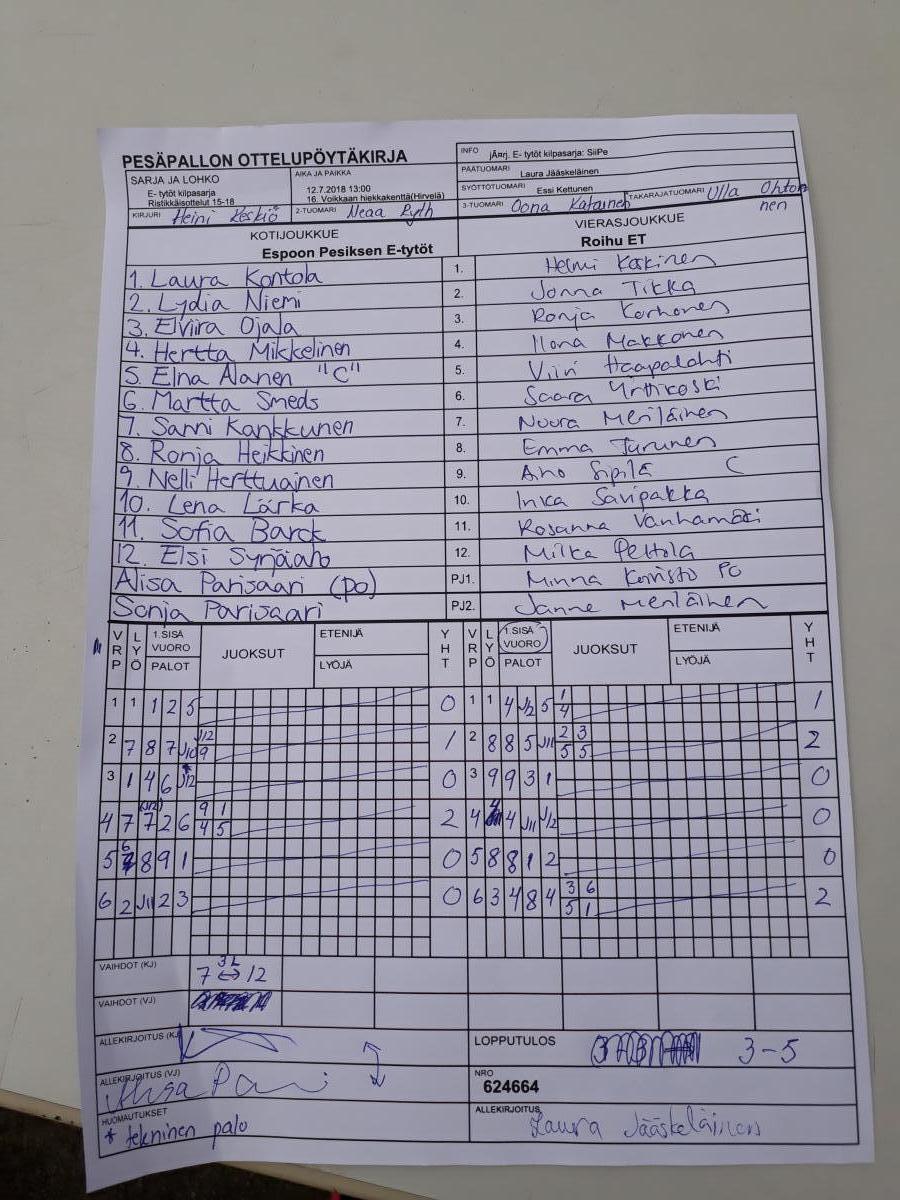 PESÄPALLON OTTELUPÖYTÄKIRJA
INFO jÄ¤rj. E- tytöt kilpasarja: SiiPe
SARJA JA LOHKO
E- tytöt kilpasarja
Ristikkäisottelut 15-18
AIKA JA PAIKKA
12.7.2018 13:00
16. Voikkaan hiekkakenttä(Hirvelä)
PÄÄTUOMARI Laura Jääskeläinen
SYÖTTÖTUOMARI Essi Kettunen
TAKARAJATUOMARI Ulla Ohtonen
KIRJURI Heini Keskiö
2-TUOMARI Neaa Ryth
3-TUOMARI Oona Katainen
KOTIJOUKKUE
Espoon Pesiksen E-tytöt
VIERASJOUKKUE
Roihu ET
1. Laura Kontola 1. Helmi Koskinen
2. Lydia Niemi 2. Jonna Tikka
3. Elviira Ojala 3. Ronja Korhonen
4. Hertta Mikkelinen 4. Ilona Makkonen
5. Elna Alanen "C" 5. Viivi Haapalahti
6. Martta Smeds 6. Saara Yrttikoski
7. Sanni Kankkunen 7. Noora Meriläinen
8. Ronja Heikkinen 8. Emma Turunen
9. Nelli Herttuainen 9. Aino Sipilä C
10. Lena Lärka 10. Inka Savipakka
11. Sofia Barck 11. Rosanna Vanhamäki
12. Elsi Synjäaho 12. Milka Peltola
Alisa Parisaari (po) PJ1. Minna Koivisto PO
Sonja Parisaari PJ2. Janne Meriläinen
VRP LYÖ 1.SISÄ VUORO PALOT JUOKSUT ETENIJÄ LYÖJÄ YHT VRP LYÖ 1.SISÄ VUORO PALOT JUOKSUT ETENIJÄ LYÖJÄ YHT
1 1 1 2 5 0 1 1 4 J12 5 1/4 1
2 7 8 7 J10 J12/9 1 2 8 8 5 J11 2/5 3/5 2
3 1 4 6 *J12 0 3 9 9 3 1 0
4 7 (J12) 7 2 6 9/4 1/5 2 4 4 4 J11 J12 0
5 6 8 9 1 0 5 8 8 1 2 0
6 2 J11 2 3 0 6 3 4 8 4 3/5 6/1 2
VAIHDOT (KJ) 7 ↔ 12 3L
VAIHDOT (VJ)
ALLEKIRJOITUS (KJ)
LOPPUTULOS 3-5
ALLEKIRJOITUS (VJ) Alisa Pari
NRO
624664
HUOMAUTUKSET
* tekninen palo
ALLEKIRJOITUS
Laura Jääskeläinen